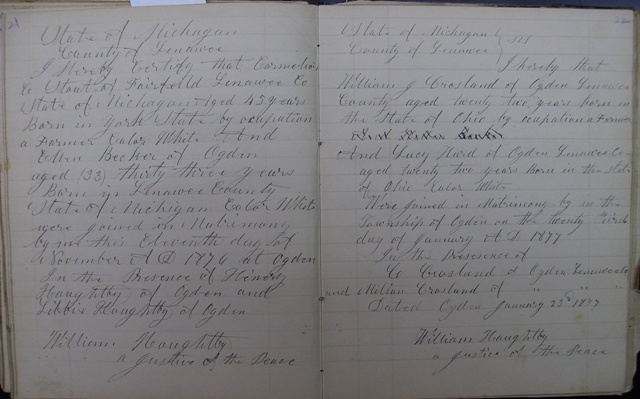 21
State of Michagan
County of Lenawee
I Hereby Certify that Cornelious
C Stout of Fairfield Lenawee Co
State of Michagan Aged 45 years
Born in york State by ocupation
a Farmer Calor White And
Ellen Becker of Ogden
aged (33) thirty three years
Born in Lenawee County
State of Michigan Calor White
were joined in Matrimony
by me this Eleventh day of
November A D 1876 at Ogden
In the Presence of Henry
Haughtby of Ogden and
Libbie Haughtby of Ogden
William Haughtby
a Justice of the Peace
22
State of Michagan
County of Lenawee
I hereby that
William J Crosland of Ogden Lenawee
County aged twenty two years born in
the State of Ohio by ocupation a Farmer
And Lucy Hurd of Ogden Lenawee Co
aged twenty two years Born in the State
of Ohio Calor White
Were joined in Matrimony by in the
Township of Ogden on the twenty third
day of January A D 1877
In the Presence of
C Crosland of Ogden Lenawee Co
and Milian Crosland of " " "
Dated Ogden January 23rd 1877
William Haughtby
a Justice of the Peace